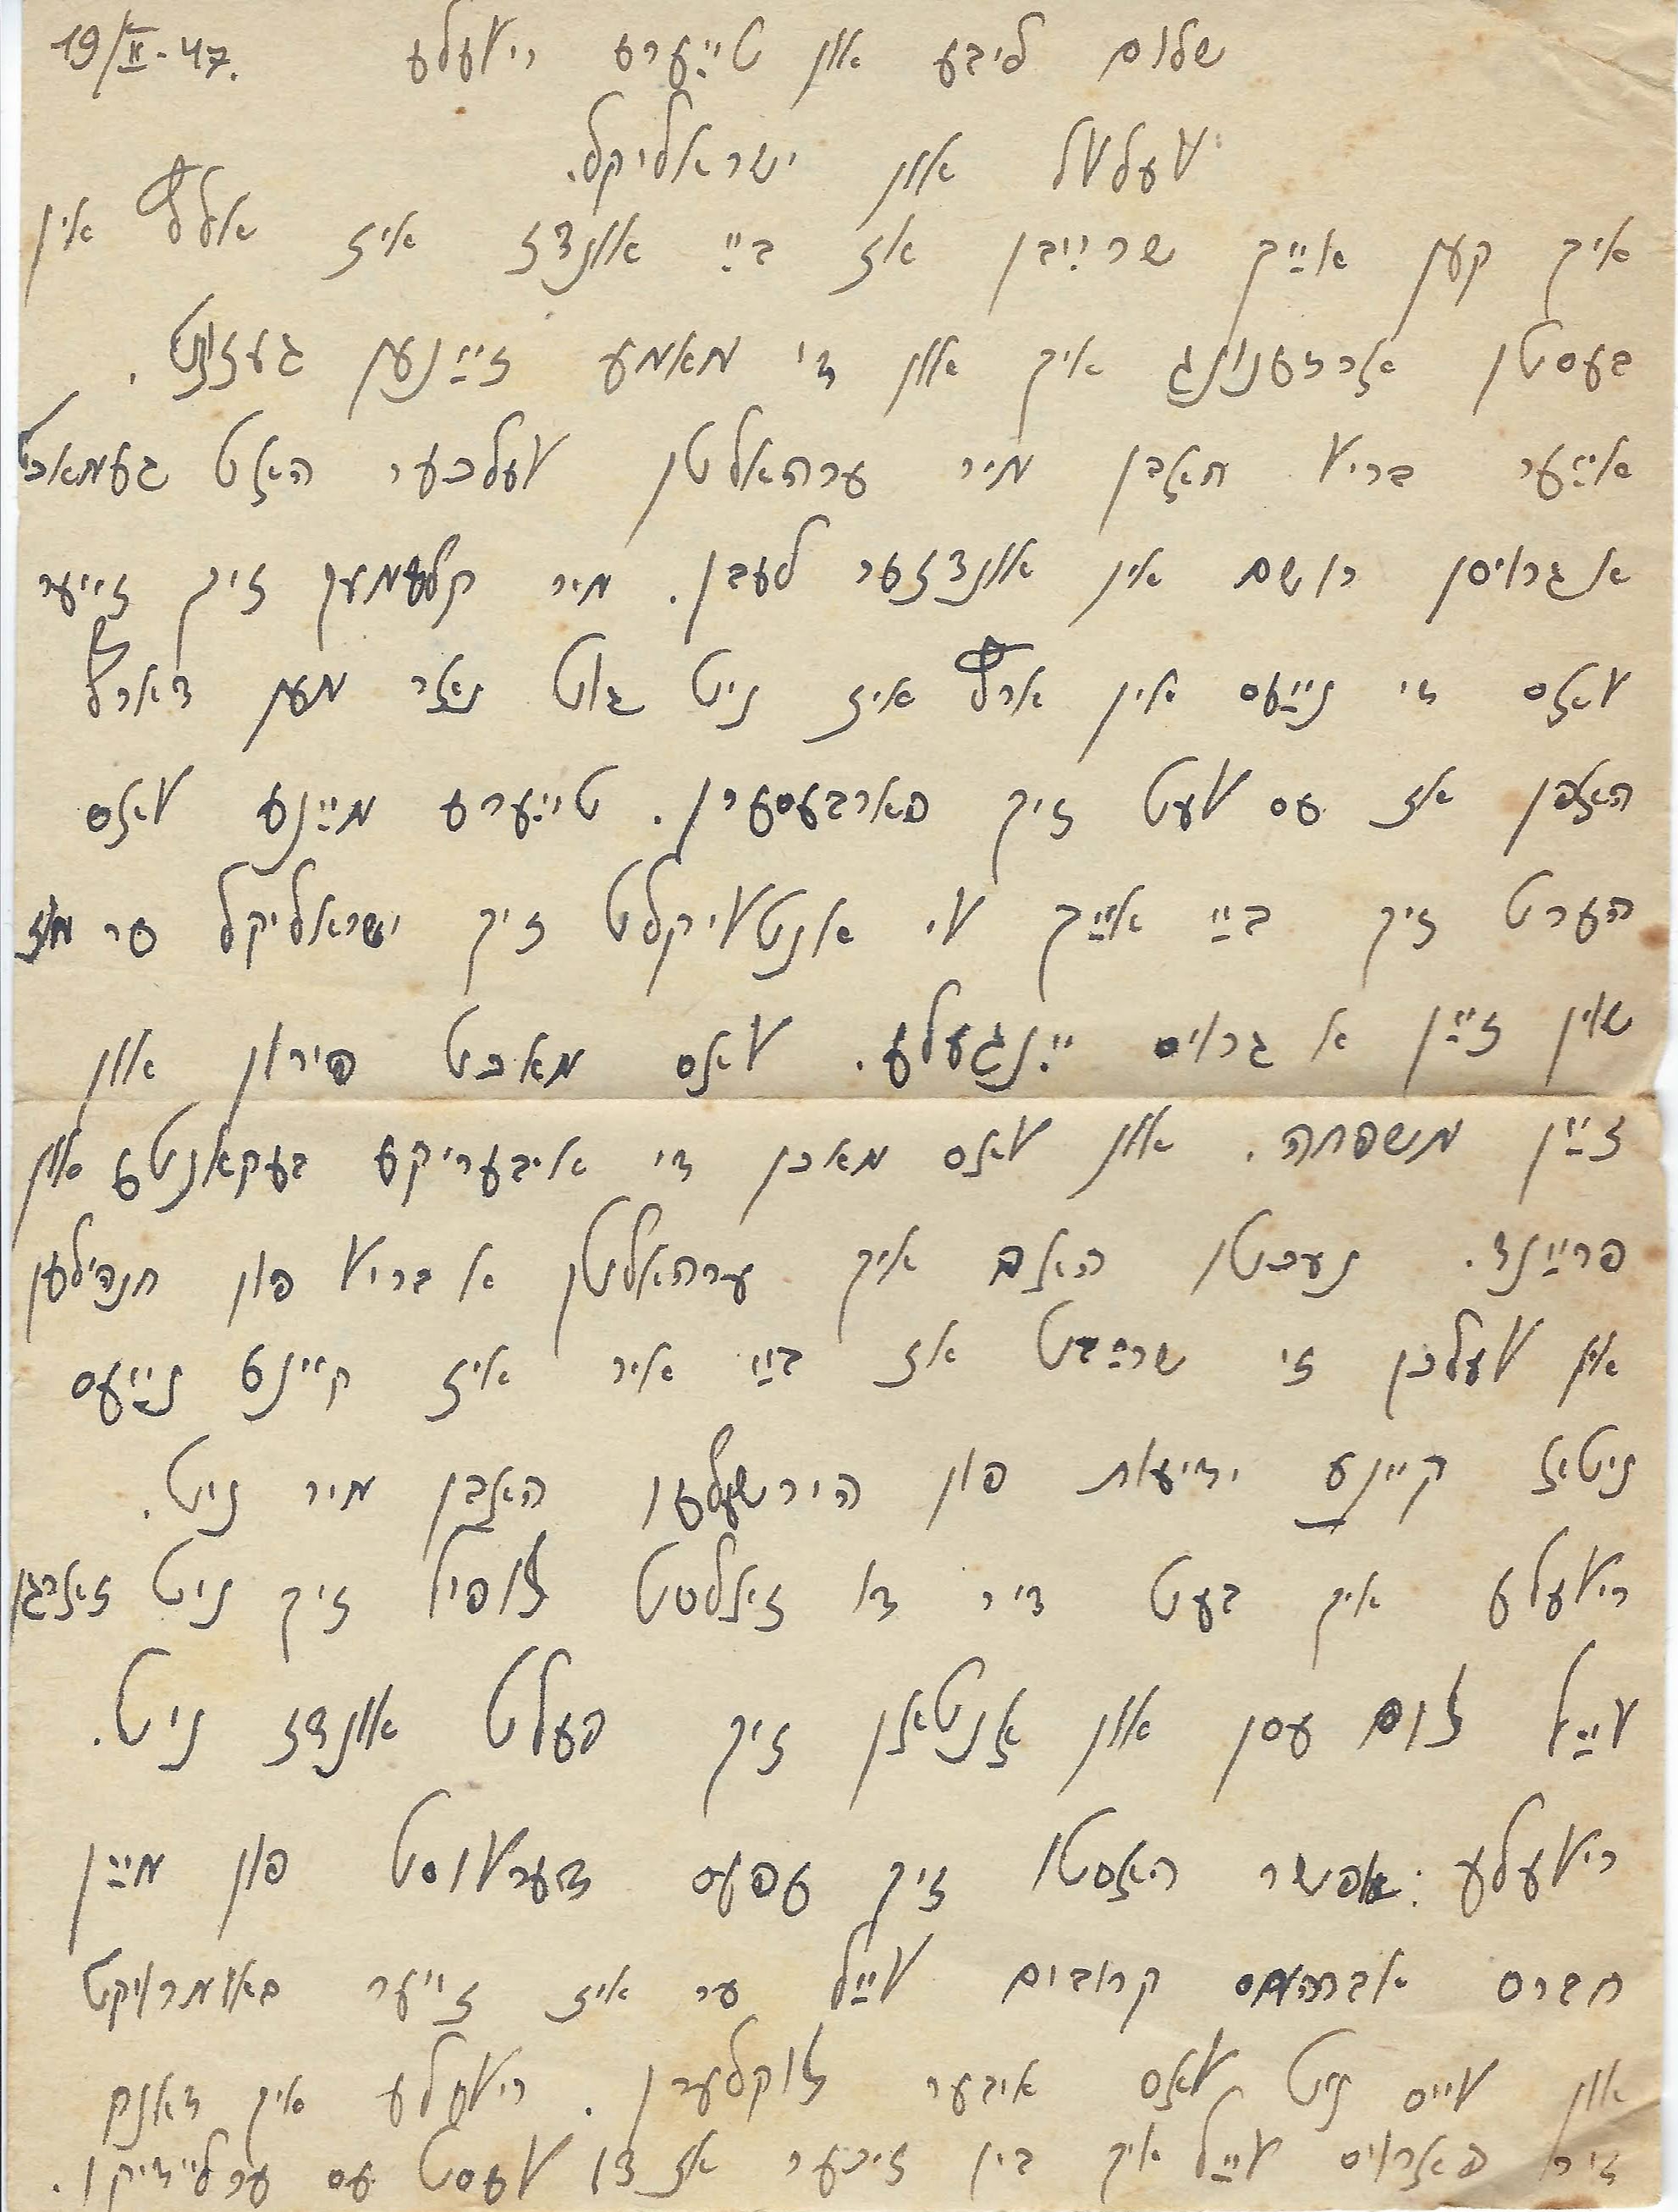 19/II-47.
שלום ליבע און טײַערע ריוועלע
וועלוול און ישראליקל.
איך קען אײַך שרײַבן אז בײַ אונדז איז אלץ אין
בעסטן ארדענונג איך און די מאמע זײַנען געזונט.
אײַער בריוו האבן מיר ערהאלטן וועלכער האט געמאכט
א גרויסן רושם אין אונדזער לעבן. מיר קלעמען זיך זייער
וואס די נײַעס אין ארץ איז ניט גוט נאר מען דארף
האפן אז עס וועט זיך פארבעסערן. טײַערע מײַנע וואס
הערט זיך בײַ אײַך ווי אנטוויקלט זיך ישראליקל ער מוז
שוין זײַן א גרויס ייִנגעלע. וואס מאכט פירון און
זײַן משפחה. און וואס מאכן די איבעריקע בעקאנטע און
פרײַנד. נעכטן האב איך ערהאלטן א בריוו פון חנהילען
אין וועלכן זי שרײַבט אז בײַ איר איז קיינע נײַעס
ניטא קיינע ידיעות פון הירשעלען האבן מיר ניט.
ריוועלע איך בעט דיר דו זאלסט צופיל זיך ניט זארגן
ווײַל צום עסן און אנטאן זיך פעלט אונדז ניט.
ריוועלע: אפשר האסטו זיך עפעס דערוווסט פון מײַן
חברס אברהמס קרובים ווײַל ער איז זייער פאאומרויקט
און ווייס ניט וואס איבער צוקלערן. ריוועלע איך דאנק
דיר פאראויס ווײַל איך בין זיכער אז דו וועסט עס ערליידיקן.